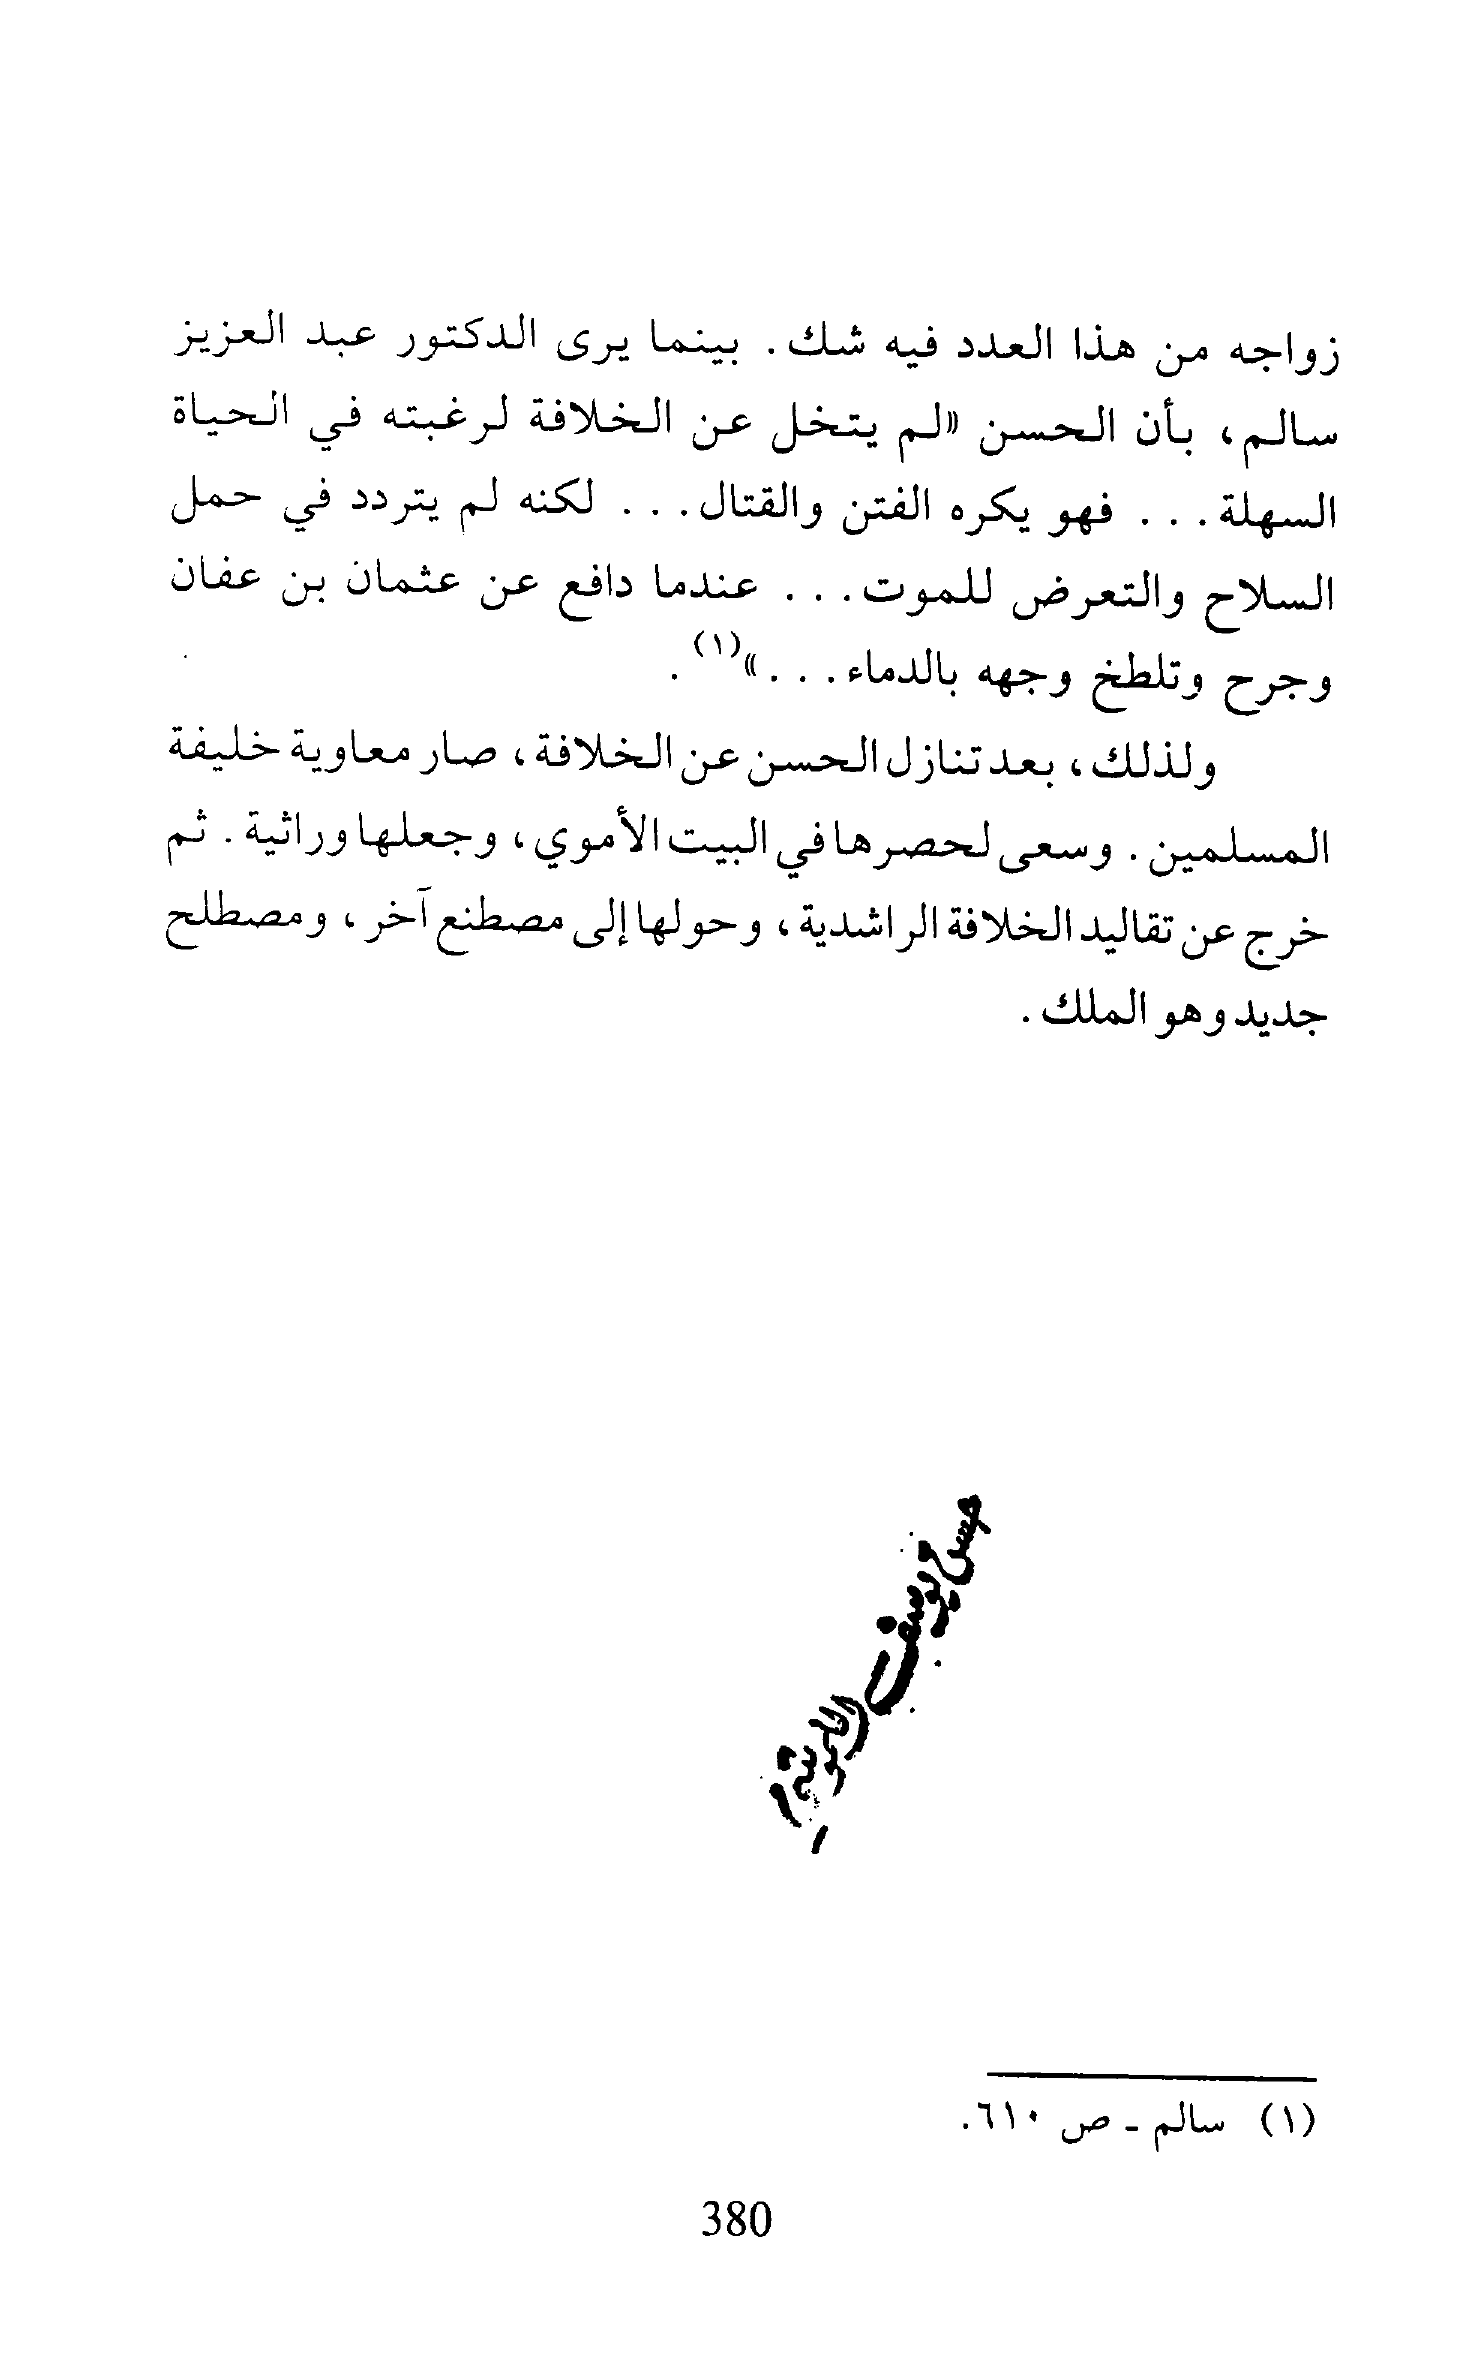 زواجه من هذا العدد فيه شك. بينما يرى الدكتور عبد العزيز
سالم، بأن الحسن «لم يتخل عن الخلافة لرغبته في الحياة
السهلة... فهو يكره الفتن والقتال... لكنه لم يتردد في حمل
السلاح والتعرض للموت... عندما دافع عن عثمان بن عفان
وجرح وتلطخ وجهه بالدماء...»(١).
ولذلك، بعد تنازل الحسن عن الخلافة، صار معاوية خليفة
المسلمين. وسعى لحصرها في البيت الأموي، وجعلها وراثية. ثم
خرج عن تقاليد الخلافة الراشدية، وحولها إلى مصطنع آخر، ومصطلح
جديد وهو الملك.
يوسف
(١) سالم - ص ٦١٠.
380